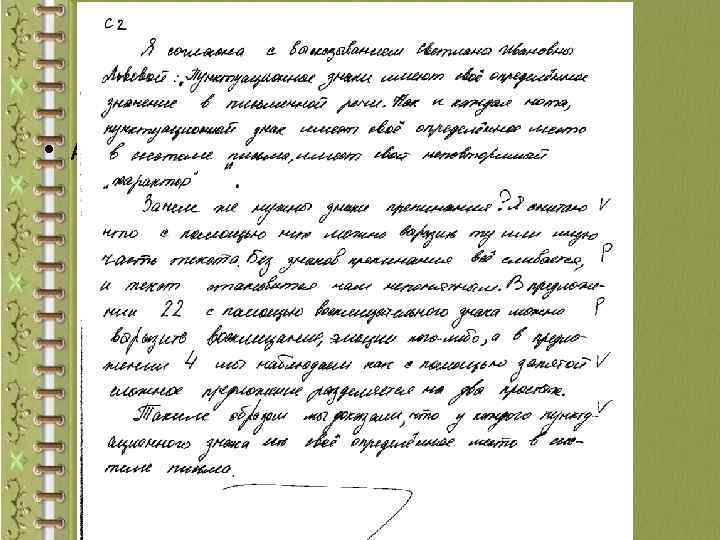 С2
Я согласна с высказыванием Светланы Ивановны
Львовой: "Пунктуационные знаки имеют своё определённое
значение в письменной речи. Как и каждая нота,
пунктуационный знак имеет своё определённое место
в системе письма, имеет свой неповторимый
"характер"".
Зачем же нужны знаки препинания? Я считаю V
что с помощью них можно выразить ту или иную
часть текста. Без знаков препинания всё сливается, Р
и текст становится нам непонятным. В предложе-
нии 22 с помощью восклицательного знака можно Р
выразить восклицание, эмоции кого-либо, а в предло-
жении 4 мы наблюдаем как с помощью запятой V
сложное предложение разделяется на два простых.
Таким образом мы доказали, что у каждого пункту- V
ационного знака есть своё определённое место в сис-
теме письма.